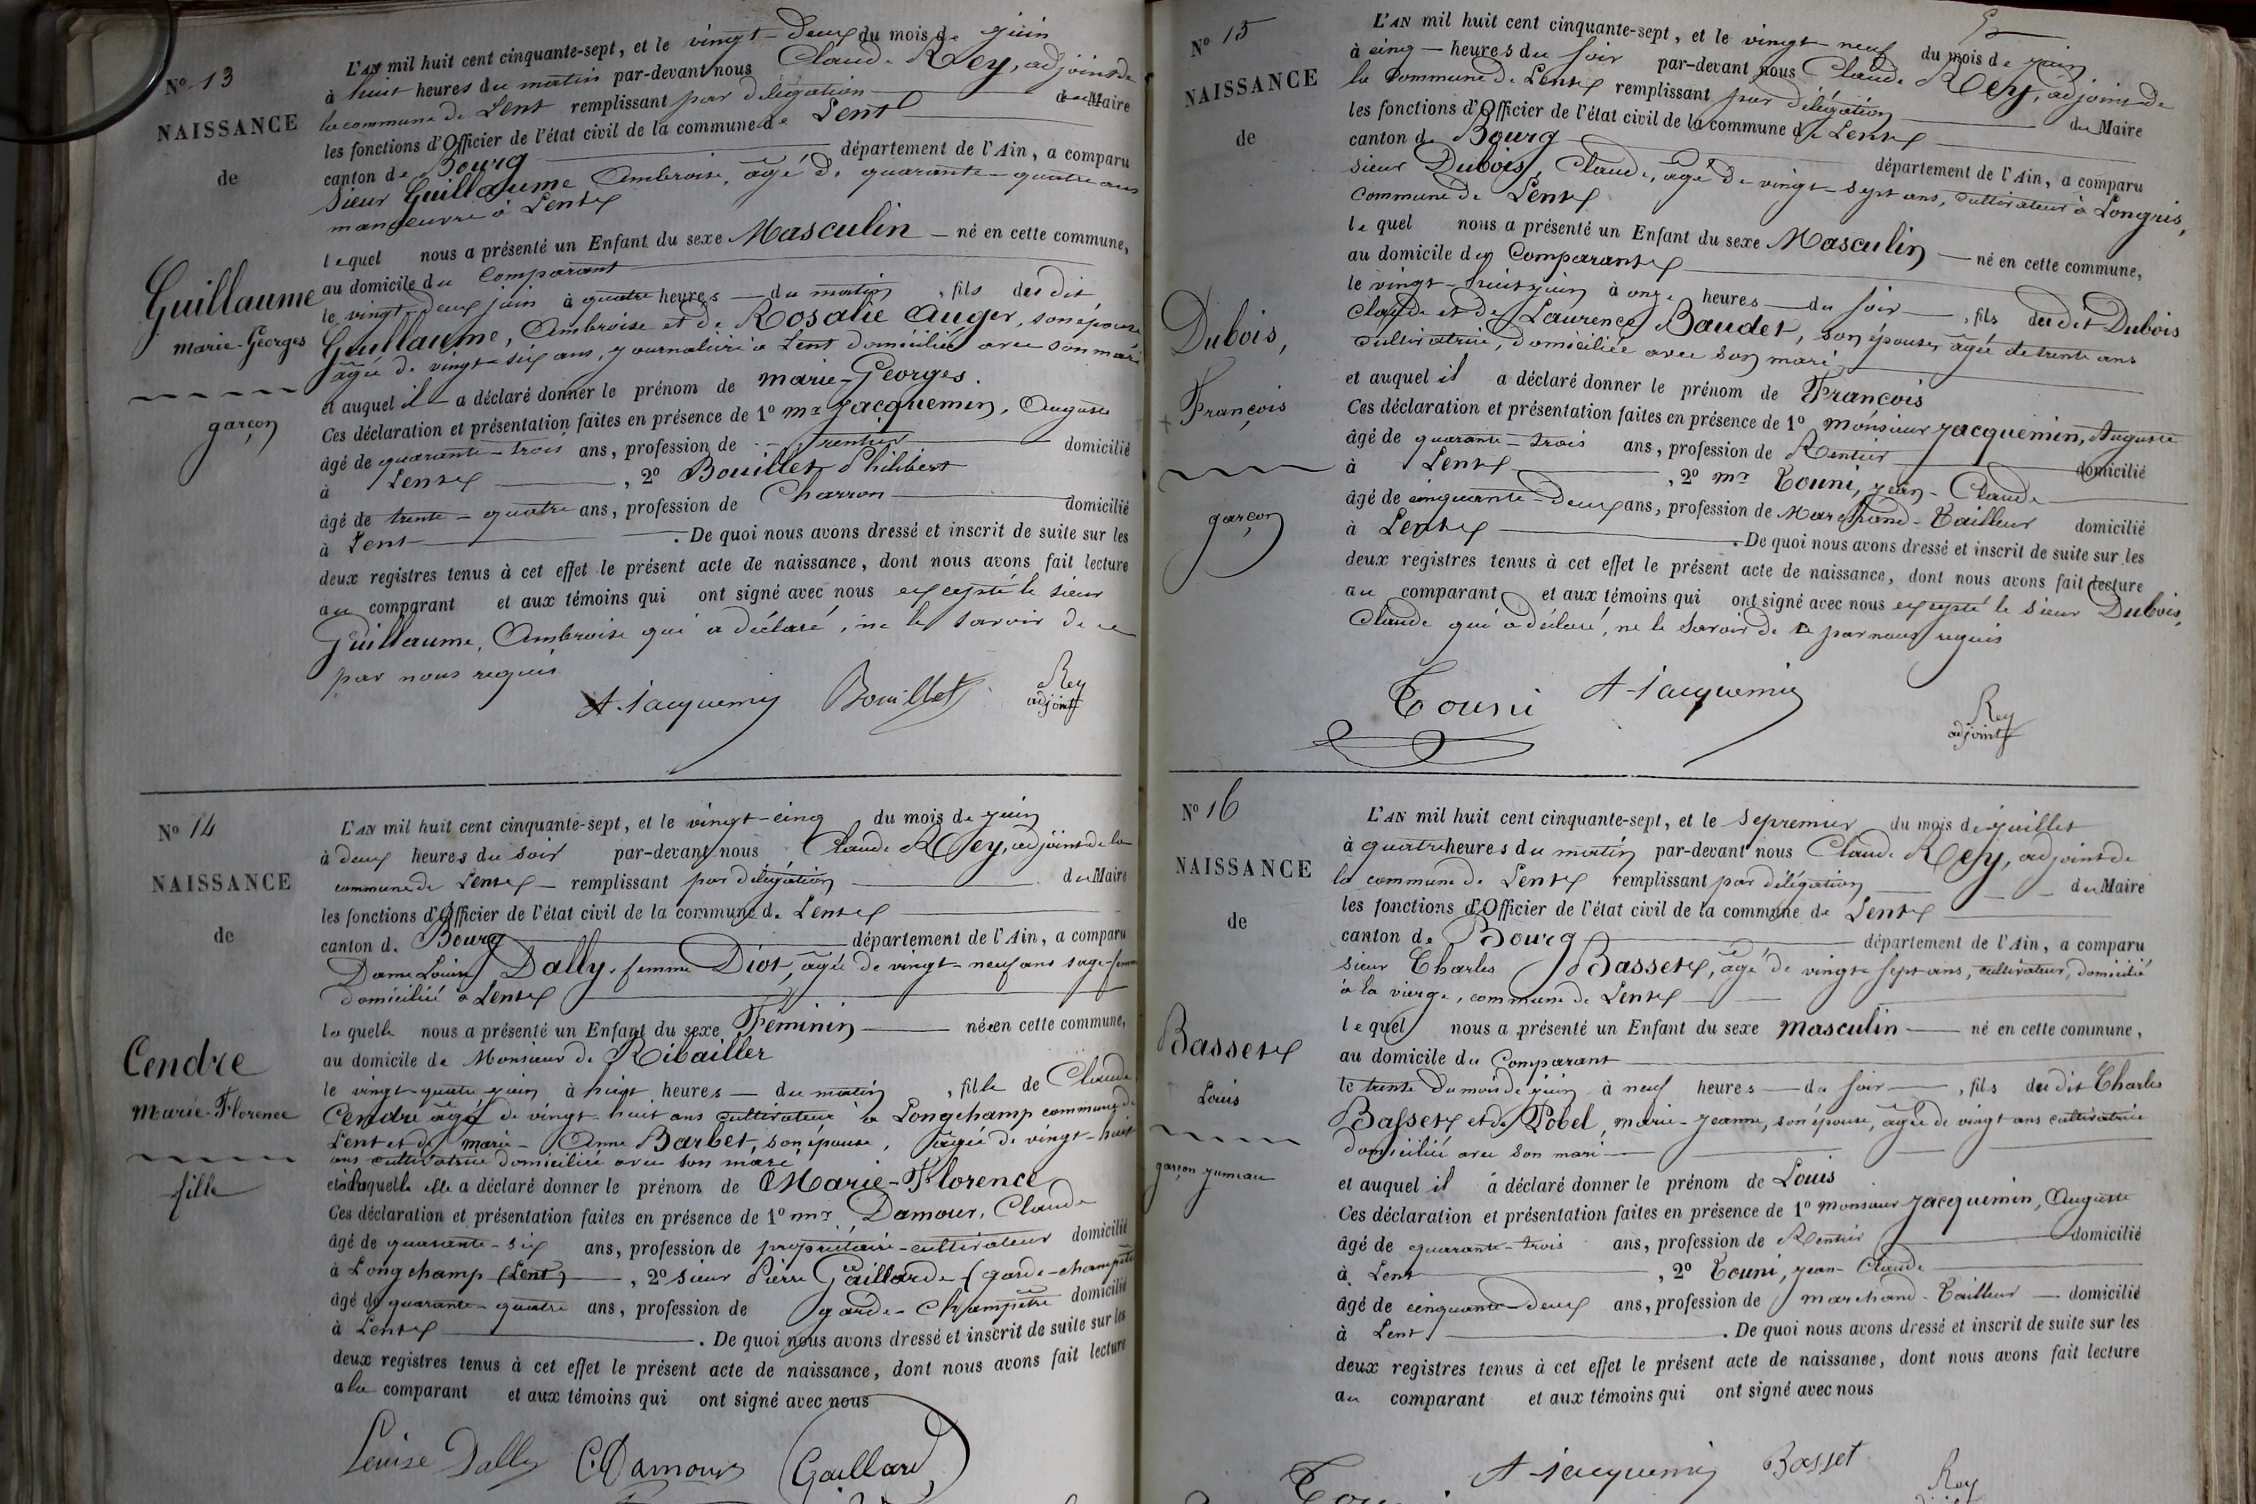 N° 13
NAISSANCE
de
Guillaume
marie-Georges
garçon
L'AN mil huit cent cinquante-sept, et le vingt-deux du mois de juin
à huit heures du matin par-devant nous Claude Rey, adjoint de
la commune de Lent remplissant par délégation du Maire
les fonctions d'Officier de l'état civil de la commune de Lent
canton de Bourg département de l'Ain, a comparu
Sieur Guillaume Ambroise, âgé de quarante-quatre ans
manœuvre à Lent
lequel nous a présenté un Enfant du sexe Masculin né en cette commune,
au domicile du Comparant
le vingt-deux juin à quatre heures du matin, fils du dit
Guillaume, Ambroise et de Rosalie Auger, son épouse
âgée de vingt-six ans, journalière à Lent domiciliée avec son mari
et auquel il a déclaré donner le prénom de marie-Georges.
Ces déclaration et présentation faites en présence de 1° mr Jacquemin, Auguste
âgé de quarante-trois ans, profession de rentier domicilié
à Lent, 2° Bouillet Philibert
âgé de trente-quatre ans, profession de Charron domicilié
à Lent. De quoi nous avons dressé et inscrit de suite sur les
deux registres tenus à cet effet le présent acte de naissance, dont nous avons fait lecture
au comparant et aux témoins qui ont signé avec nous excepté le sieur
Guillaume, Ambroise qui a déclaré, ne le savoir de ce
par nous requis
A. Jacquemin Bouillet Rey
adjoint
N° 14
NAISSANCE
de
Cendre
Marie-Florence
fille
L'AN mil huit cent cinquante-sept, et le vingt-cinq du mois de juin
à deux heures du soir par-devant nous Claude Rey, adjoint de la
commune de Lent remplissant par délégation du Maire
les fonctions d'Officier de l'état civil de la commune de Lent
canton de Bourg département de l'Ain, a comparu
Dame Louise Dally, femme Diot, âgée de vingt-neuf ans sage-femme
domiciliée à Lent
laquelle nous a présenté un Enfant du sexe Féminin née en cette commune,
au domicile de Monsieur de Ribailler
le vingt-quatre juin à huit heures du matin, fille de Claude
Cendre âgé de vingt-huit ans cultivateur à Longchamp commune de
Lent et de marie-Anne Barbet, son épouse, âgée de vingt-huit
ans cultivatrice domiciliée avec son mari
et à laquelle elle a déclaré donner le prénom de Marie-Florence
Ces déclaration et présentation faites en présence de 1° mr Damour, Claude
âgé de quarante-six ans, profession de propriétaire-cultivateur domicilié
à Longchamp (Lent), 2° sieur Pierre Gaillard (garde-champêtre
âgé de quarante-quatre ans, profession de garde-champêtre domicilié
à Lent. De quoi nous avons dressé et inscrit de suite sur les
deux registres tenus à cet effet le présent acte de naissance, dont nous avons fait lecture
a la comparant et aux témoins qui ont signé avec nous
Louise Dally C. Damour Gaillard
N° 15
NAISSANCE
de
Dubois,
François
garçon
L'AN mil huit cent cinquante-sept, et le vingt-neuf du mois de juin
à cinq heures du soir par-devant nous Claude Rey, adjoint de
la commune de Lent remplissant par délégation du Maire
les fonctions d'Officier de l'état civil de la commune de Lent
canton de Bourg département de l'Ain, a comparu
sieur Dubois, Claude, âgé de vingt-sept ans, cultivateur à Longris,
commune de Lent
lequel nous a présenté un Enfant du sexe Masculin né en cette commune,
au domicile du Comparant
le vingt-huit juin à onze heures du soir, fils du dit Dubois
Claude et de Laurence Baudet, son épouse, âgée de trente ans
cultivatrice, domiciliée avec son mari
et auquel il a déclaré donner le prénom de François
Ces déclaration et présentation faites en présence de 1° monsieur Jacquemin, Auguste
âgé de quarante-trois ans, profession de Rentier domicilié
à Lent, 2° mr Touni, jean-Claude
âgé de cinquante-deux ans, profession de Marchand-Tailleur domicilié
à Lent. De quoi nous avons dressé et inscrit de suite sur les
deux registres tenus à cet effet le présent acte de naissance, dont nous avons fait lecture
au comparant et aux témoins qui ont signé avec nous excepté le sieur Dubois,
Claude qui a déclaré, ne le savoir de ce par nous requis
Touni A. Jacquemin Rey
adjoint
N° 16
NAISSANCE
de
Basset
Louis
garçon jumeau
L'AN mil huit cent cinquante-sept, et le premier du mois de juillet
à quatre heures du matin par-devant nous Claude Rey, adjoint de
la commune de Lent remplissant par délégation du Maire
les fonctions d'Officier de l'état civil de la commune de Lent
canton de Bourg département de l'Ain, a comparu
sieur Charles Basset, âgé de vingt-sept ans, cultivateur, domicilié
à la vierge, commune de Lent
lequel nous a présenté un Enfant du sexe masculin né en cette commune,
au domicile du Comparant
le trente du mois de juin à neuf heures du soir, fils du dit Charles
Basset et de Pobel, marie-jeanne, son épouse, âgée de vingt ans cultivatrice
domiciliée avec son mari
et auquel il a déclaré donner le prénom de Louis
Ces déclaration et présentation faites en présence de 1° monsieur Jacquemin, Auguste
âgé de quarante-trois ans, profession de Rentier domicilié
à Lent, 2° Touni, jean-Claude
âgé de cinquante-deux ans, profession de marchand-Tailleur domicilié
à Lent. De quoi nous avons dressé et inscrit de suite sur les
deux registres tenus à cet effet le présent acte de naissance, dont nous avons fait lecture
au comparant et aux témoins qui ont signé avec nous
A. Jacquemin Basset Rey